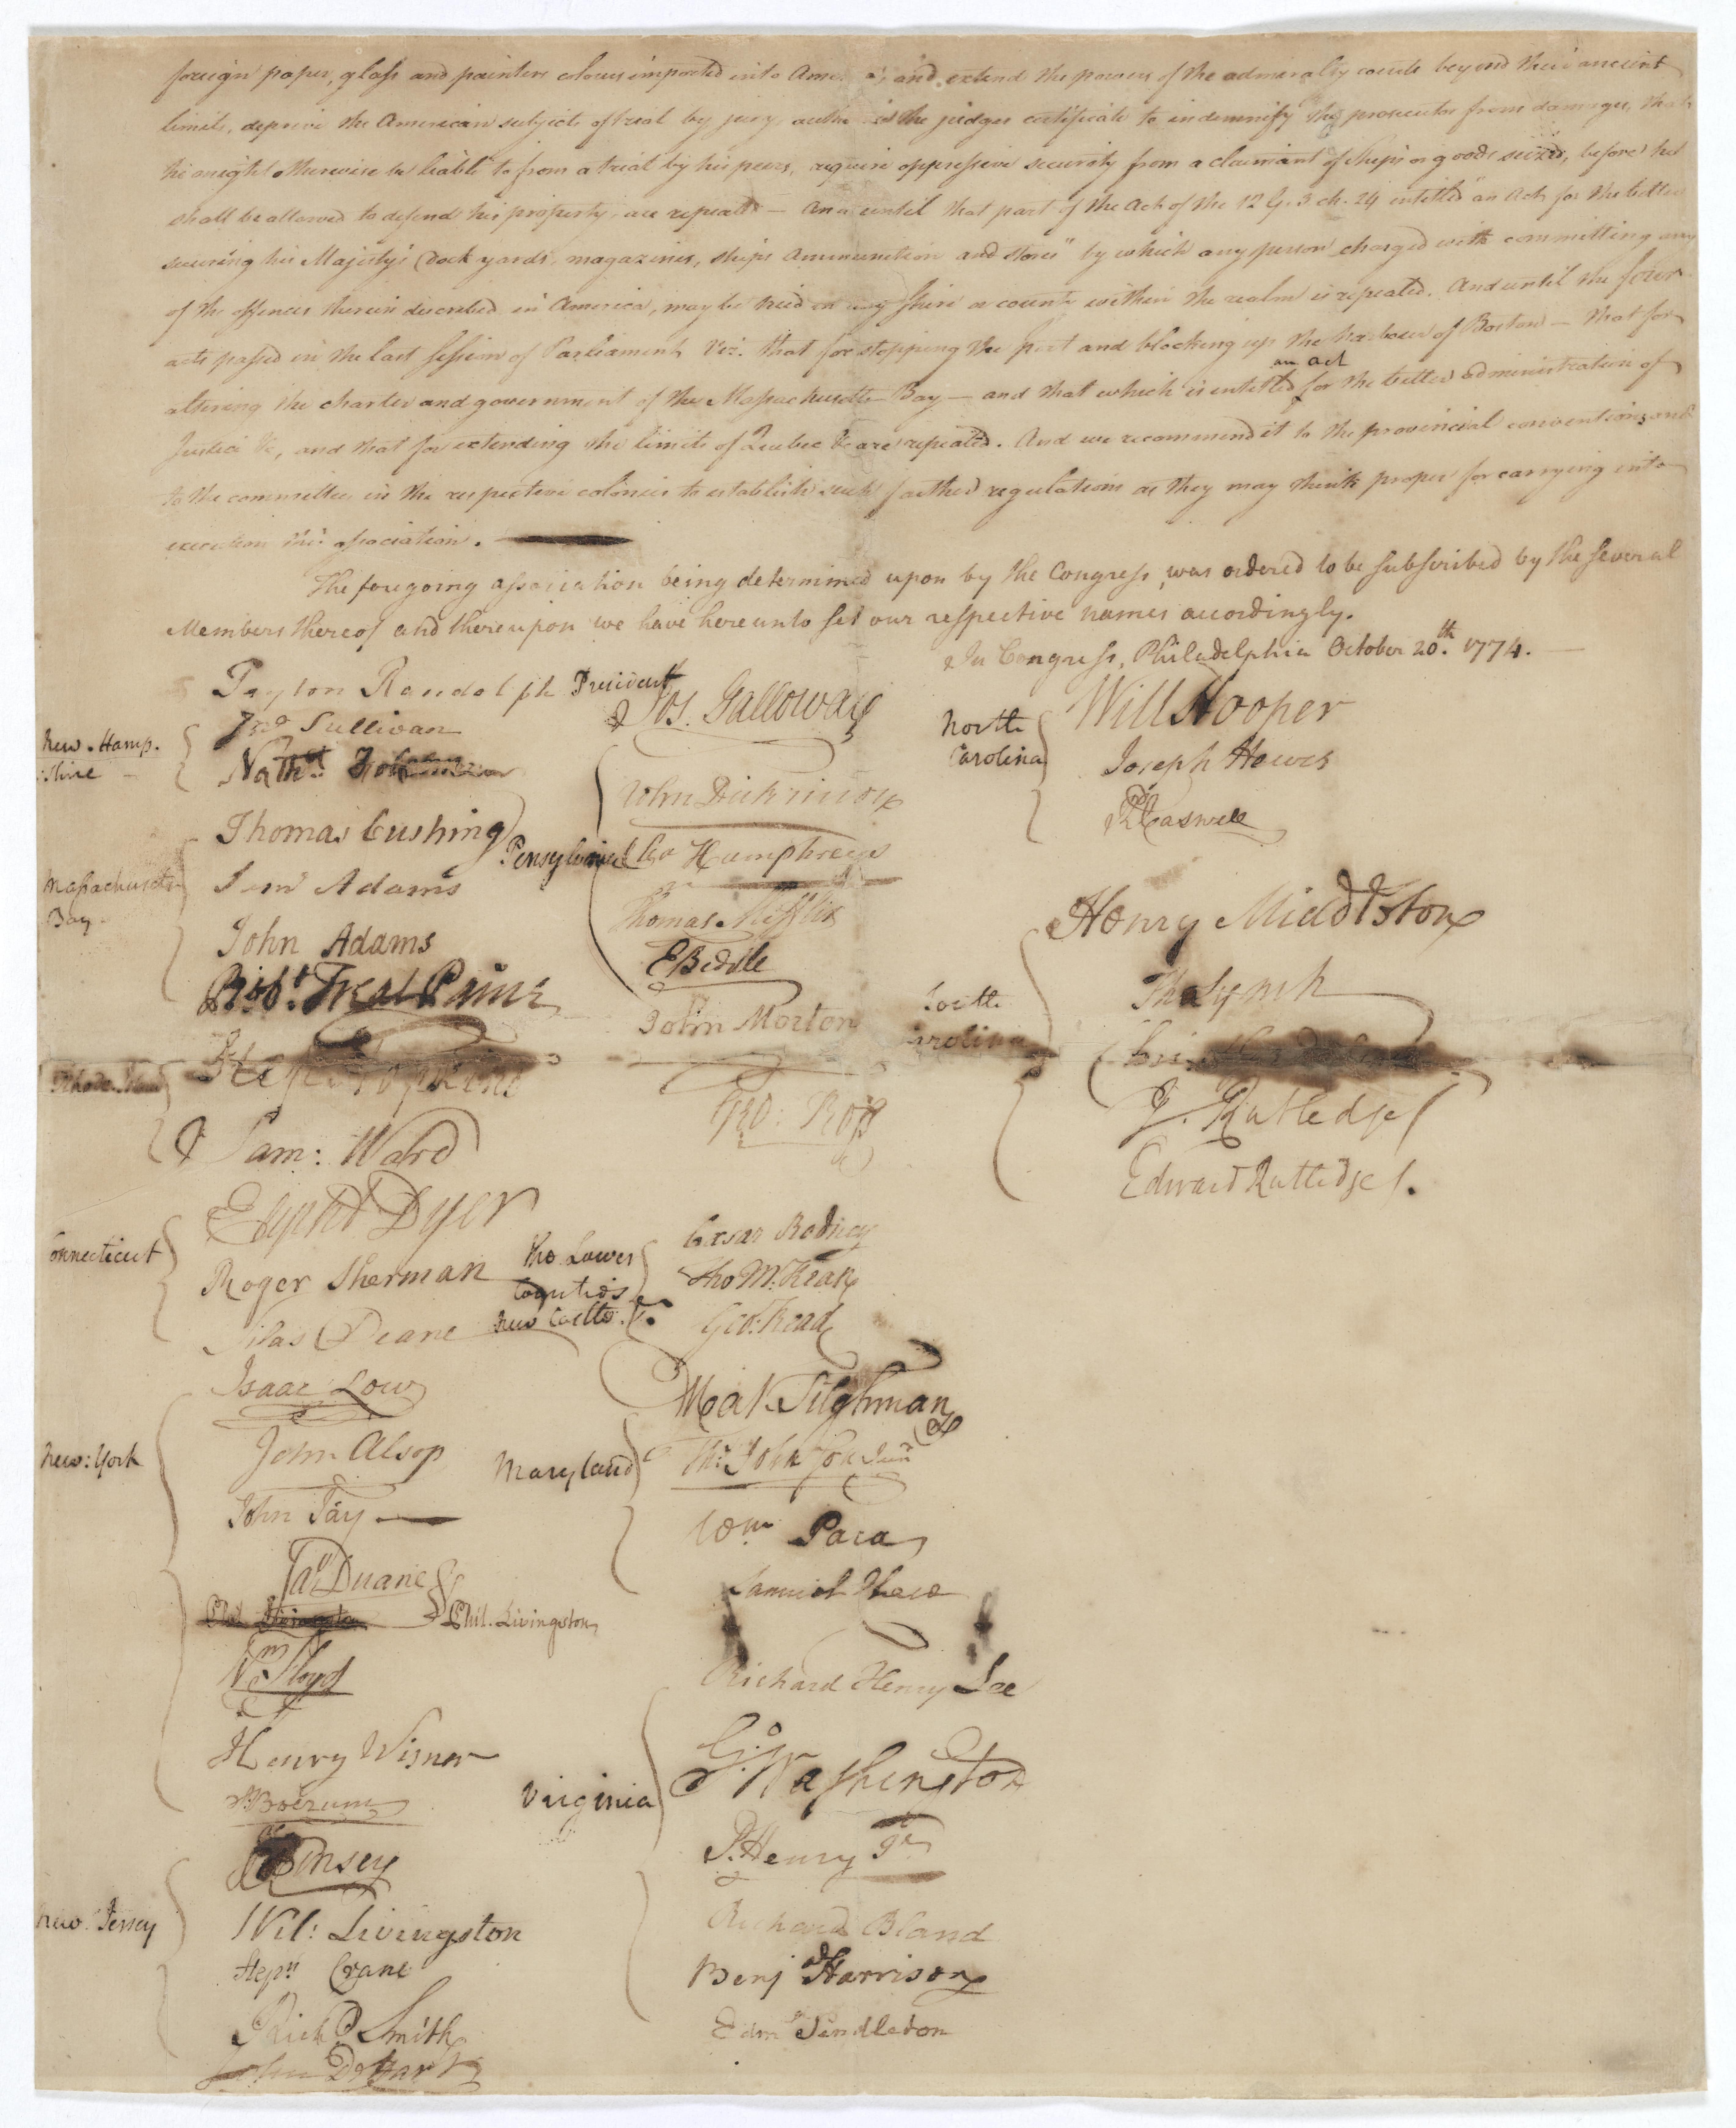 foreign paper, glass and painters colours imported into America, and extend the powers of the admiralty courts beyond their ancient
limits, deprive the American subject of trial by jury, authorize the judges certificate to indemnify the prosecutor from damages, that
he might otherwise be liable to from a trial by his peers, require oppressive security from a claimant of ships or goods seized, before he
shall be allowed to defend his property, are repealed — And until that part of the Act of the 12 G. 3 ch. 24 entitled "an Act for the better
securing his Majesty's Dock yards, magazines, ships Ammunition and stores" by which any person charged with committing any
of the offences therein described in America, may be tried in any shire or county within the realm is repealed. And until the four
acts passed in the last session of Parliament Viz. that for stopping the port and blocking up the harbour of Boston — that for
an act
altering the charter and government of the Massachusetts Bay — and that which is entitled for the better administration of
Justice &c, and that for extending the limits of Quebec &c are repealed. And we recommend it to the provincial conventions and
to the committees in the respective colonies to establish such farther regulations as they may think proper for carrying into
execution this association.
The foregoing association being determined upon by the Congress, was ordered to be subscribed by the several
Members thereof and thereupon we have hereunto set our respective names accordingly.
In Congress, Philadelphia October 20th. 1774.
Peyton Randolph President
New Hamp.
shire
Jno Sullivan
Nathl. Folsom
Massachusetts
Bay
Thomas Cushing
Saml Adams
John Adams
Robt. Treat Paine
Rhode Island
Step Hopkins
Sam: Ward
Connecticut
Elipht Dyer
Roger Sherman
Silas Deane
New York
Isaac Low
John Alsop
John Jay
Jas Duane
Phil. Livingston
Wm Floyd
Henry Wisner
S: Boerum
New Jersey
J. Kinsey
Wil: Livingston
Stepn. Crane
Richd. Smith
John De Hart
Pensylvania
Jos. Galloway
John Dickinson
Cha Humphreys
Thomas Mifflin
E Biddle
John Morton
Geo: Ross
the Lower
Counties
New Castle &c.
Cæsar Rodney
Tho M:Kean
Geo: Read
Maryland
Mat Tilghman
Ths. Johnson Junr
Wm Paca
Samuel Chase
Virginia
Richard Henry Lee
Go. Washington
P. Henry Jr
Richard Bland
Benj Harrison
Edmd Pendleton
North
Carolina
Will Hooper
Joseph Hewes
Rd Caswell
South
Carolina
Henry Middleton
Tho Lynch
J. Rutledge
Edward Rutledge.